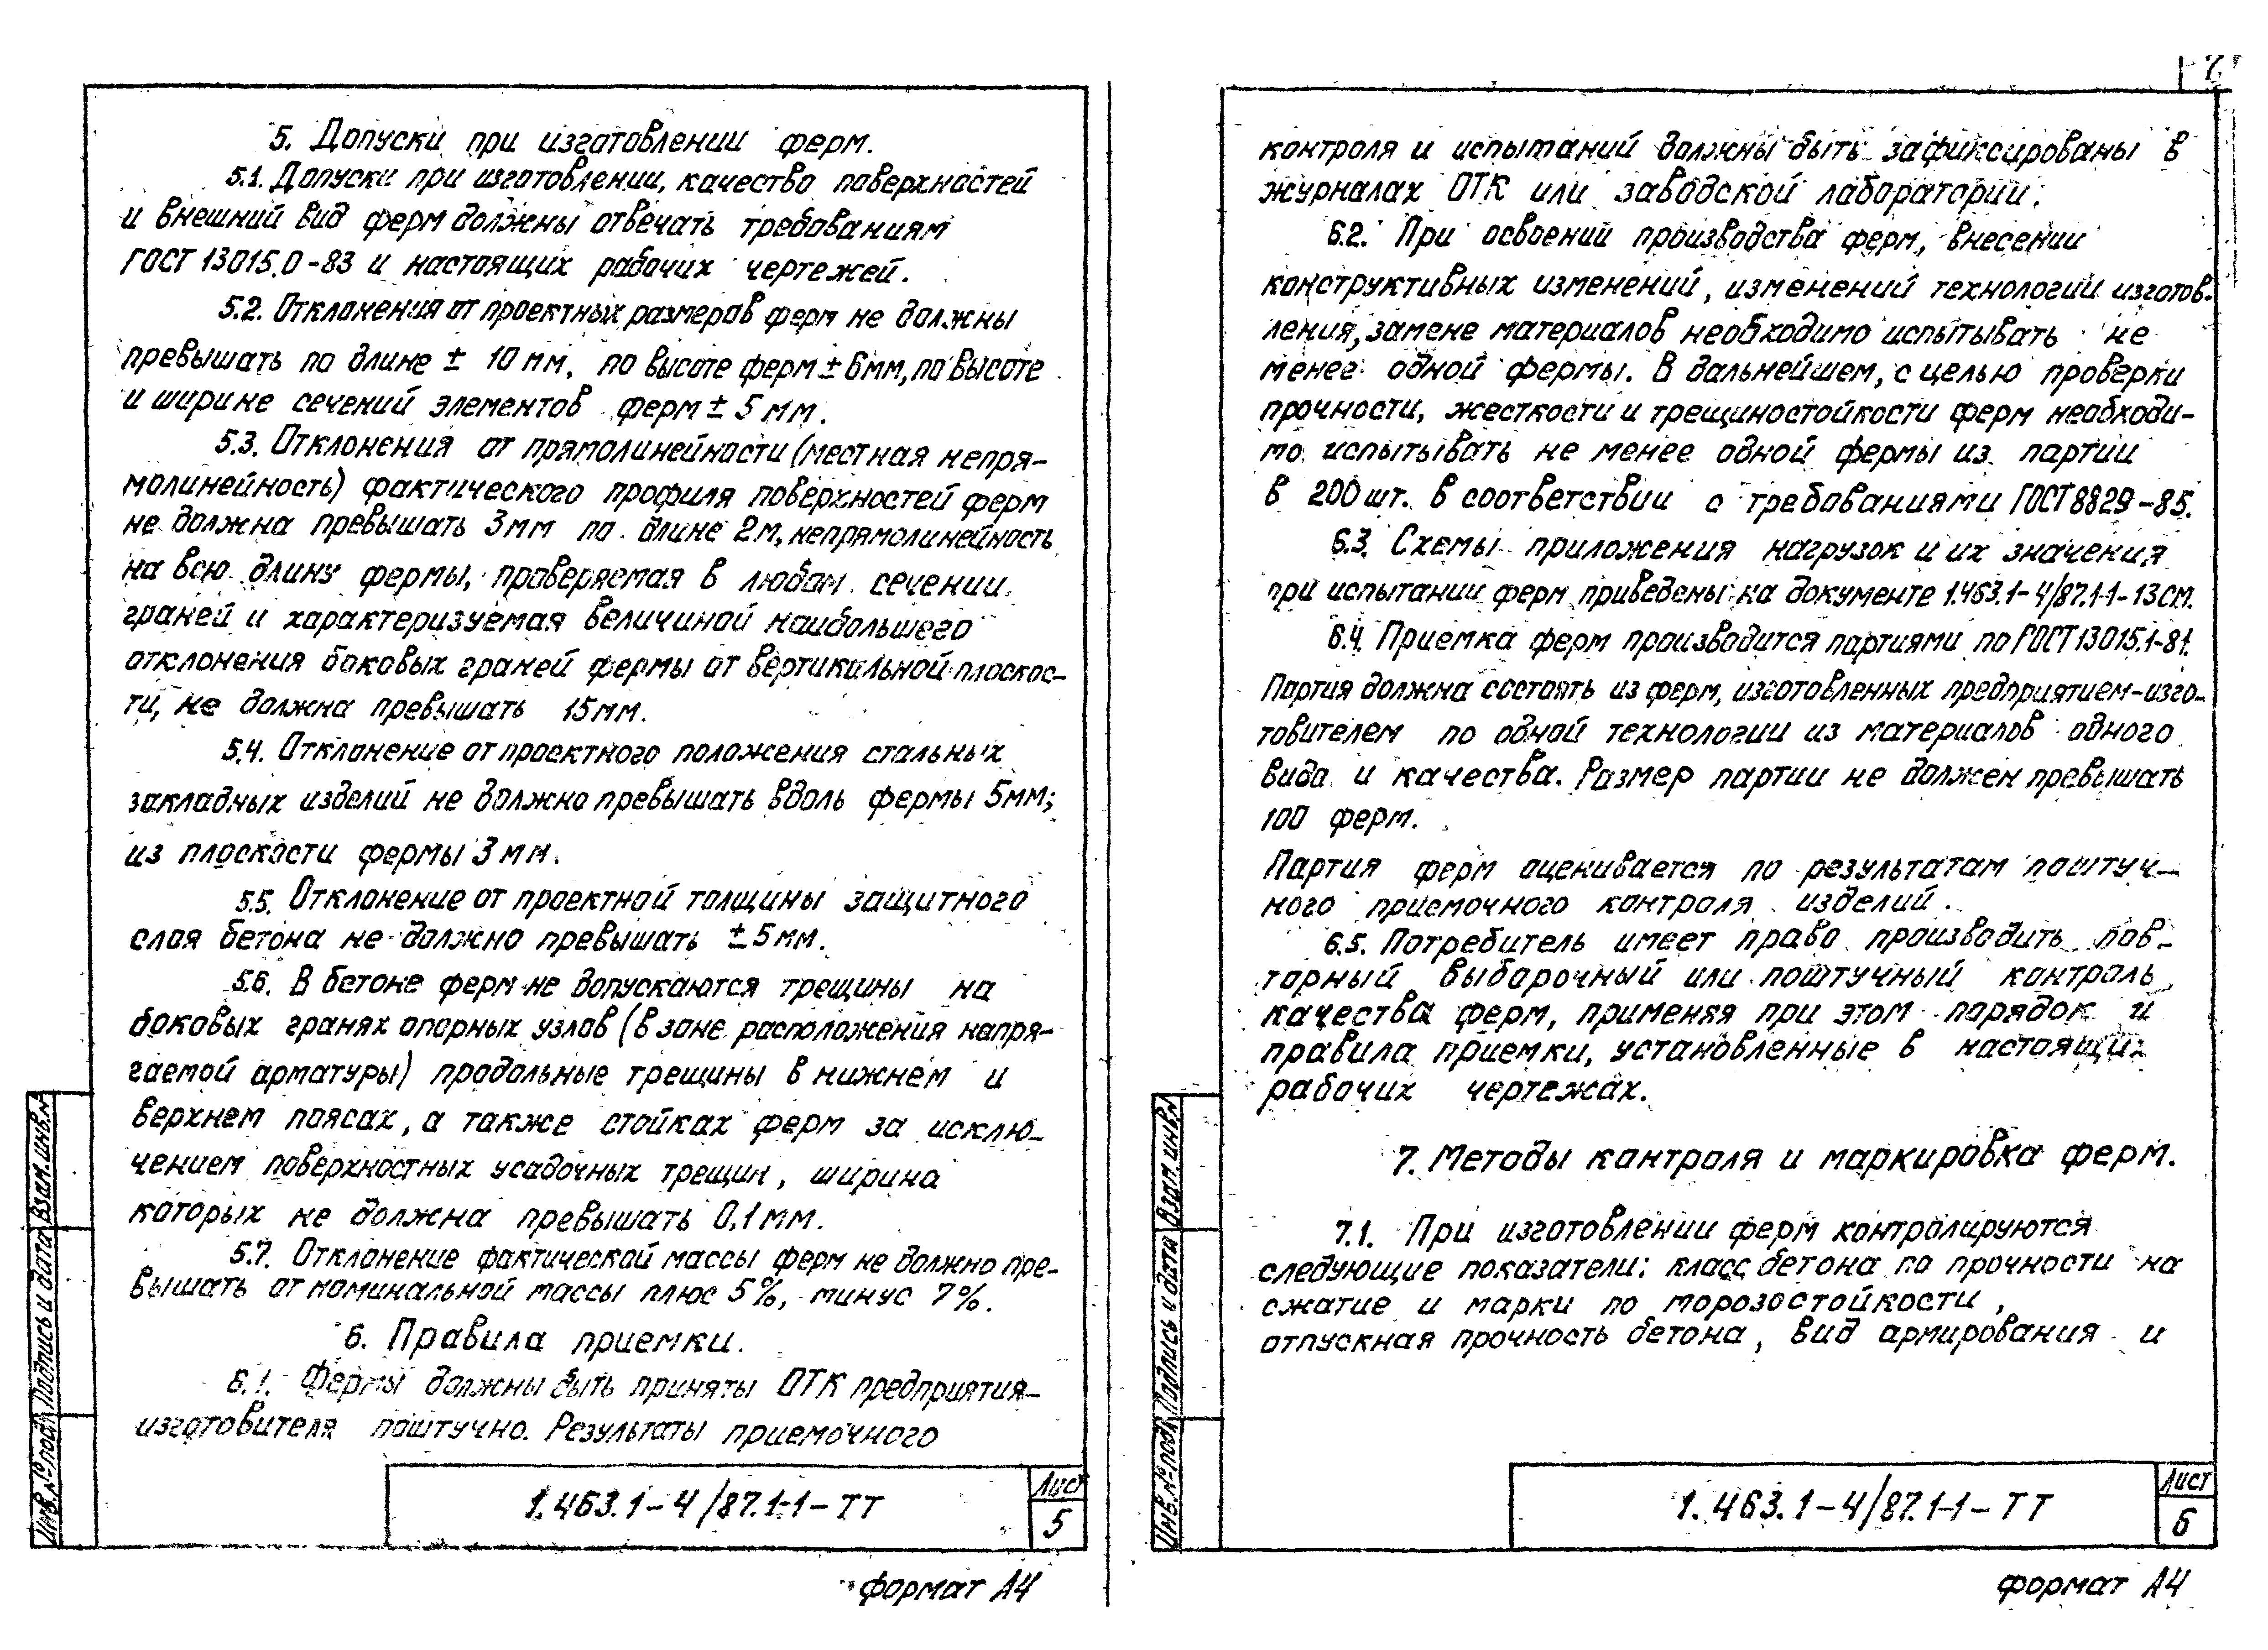 5. Допуски при изготовлении ферм.
5.1. Допуски при изготовлении, качество поверхностей
и внешний вид ферм должны отвечать требованиям
ГОСТ 13015.0-83 и настоящих рабочих чертежей.
5.2. Отклонения от проектных размеров ферм не должны
превышать по длине ± 10 мм, по высоте ферм ± 6мм, по высоте
и ширине сечений элементов ферм ± 5 мм.
5.3. Отклонения от прямолинейности (местная непря-
молинейность) фактического профиля поверхностей ферм
не должна превышать 3мм по длине 2м, непрямолинейность
на всю длину фермы, проверяемая в любом сечении
граней и характеризуемая величиной наибольшего
отклонения боковых граней фермы от вертикальной плоскос-
ти, не должна превышать 15мм.
5.4. Отклонение от проектного положения стальных
закладных изделий не должно превышать вдоль фермы 5мм;
из плоскости фермы 3мм.
5.5. Отклонение от проектной толщины защитного
слоя бетона не должно превышать ±5мм.
5.6. В бетоне ферм не допускаются трещины на
боковых гранях опорных узлов (в зоне расположения напря-
гаемой арматуры) продольные трещины в нижнем и
верхнем поясах, а также стойках ферм за исклю-
чением поверхностных усадочных трещин, ширина
которых не должна превышать 0,1мм.
5.7. Отклонение фактической массы ферм не должно пре-
вышать от номинальной массы плюс 5%, минус 7%.
6. Правила приемки.
6.1. Фермы должны быть приняты ОТК предприятия-
изготовителя поштучно. Результаты приемочного
Взам. инв.№
Подпись и дата
Инв.№подл.
1.463.1-4/87.1-1-ТТ
Лист
5
Формат А4
7
контроля и испытаний должны быть зафиксированы в
журналах ОТК или заводской лаборатории.
6.2. При освоении производства ферм, внесении
конструктивных изменений, изменений технологии изготов-
ления, замене материалов необходимо испытывать не
менее одной фермы. В дальнейшем, с целью проверки
прочности, жесткости и трещиностойкости ферм необходи-
мо испытывать не менее одной фермы из партии
в 200 шт. в соответствии с требованиями ГОСТ 8829-85.
6.3. Схемы приложения нагрузок и их значения
при испытании ферм приведены на документе 1.463.1-4/87.1-1-13СМ.
6.4. Приемка ферм производится партиями по ГОСТ 13015.1-81.
Партия должна состоять из ферм, изготовленных предприятием-изго-
товителем по одной технологии из материалов одного
вида и качества. Размер партии не должен превышать
100 ферм.
Партия ферм оценивается по результатам поштуч-
ного приемочного контроля изделий.
6.5. Потребитель имеет право производить пов-
торный выборочный или поштучный контроль
качества ферм, применяя при этом порядок и
правила приемки, установленные в настоящих
рабочих чертежах.
7. Методы контроля и маркировка ферм.
7.1. При изготовлении ферм контролируются
следующие показатели: класс бетона по прочности на
сжатие и марки по морозостойкости,
отпускная прочность бетона, вид армирования и
Взам. инв.№
Подпись и дата
Инв.№подл.
1.463.1-4/87.1-1-ТТ
Лист
6
Формат А4